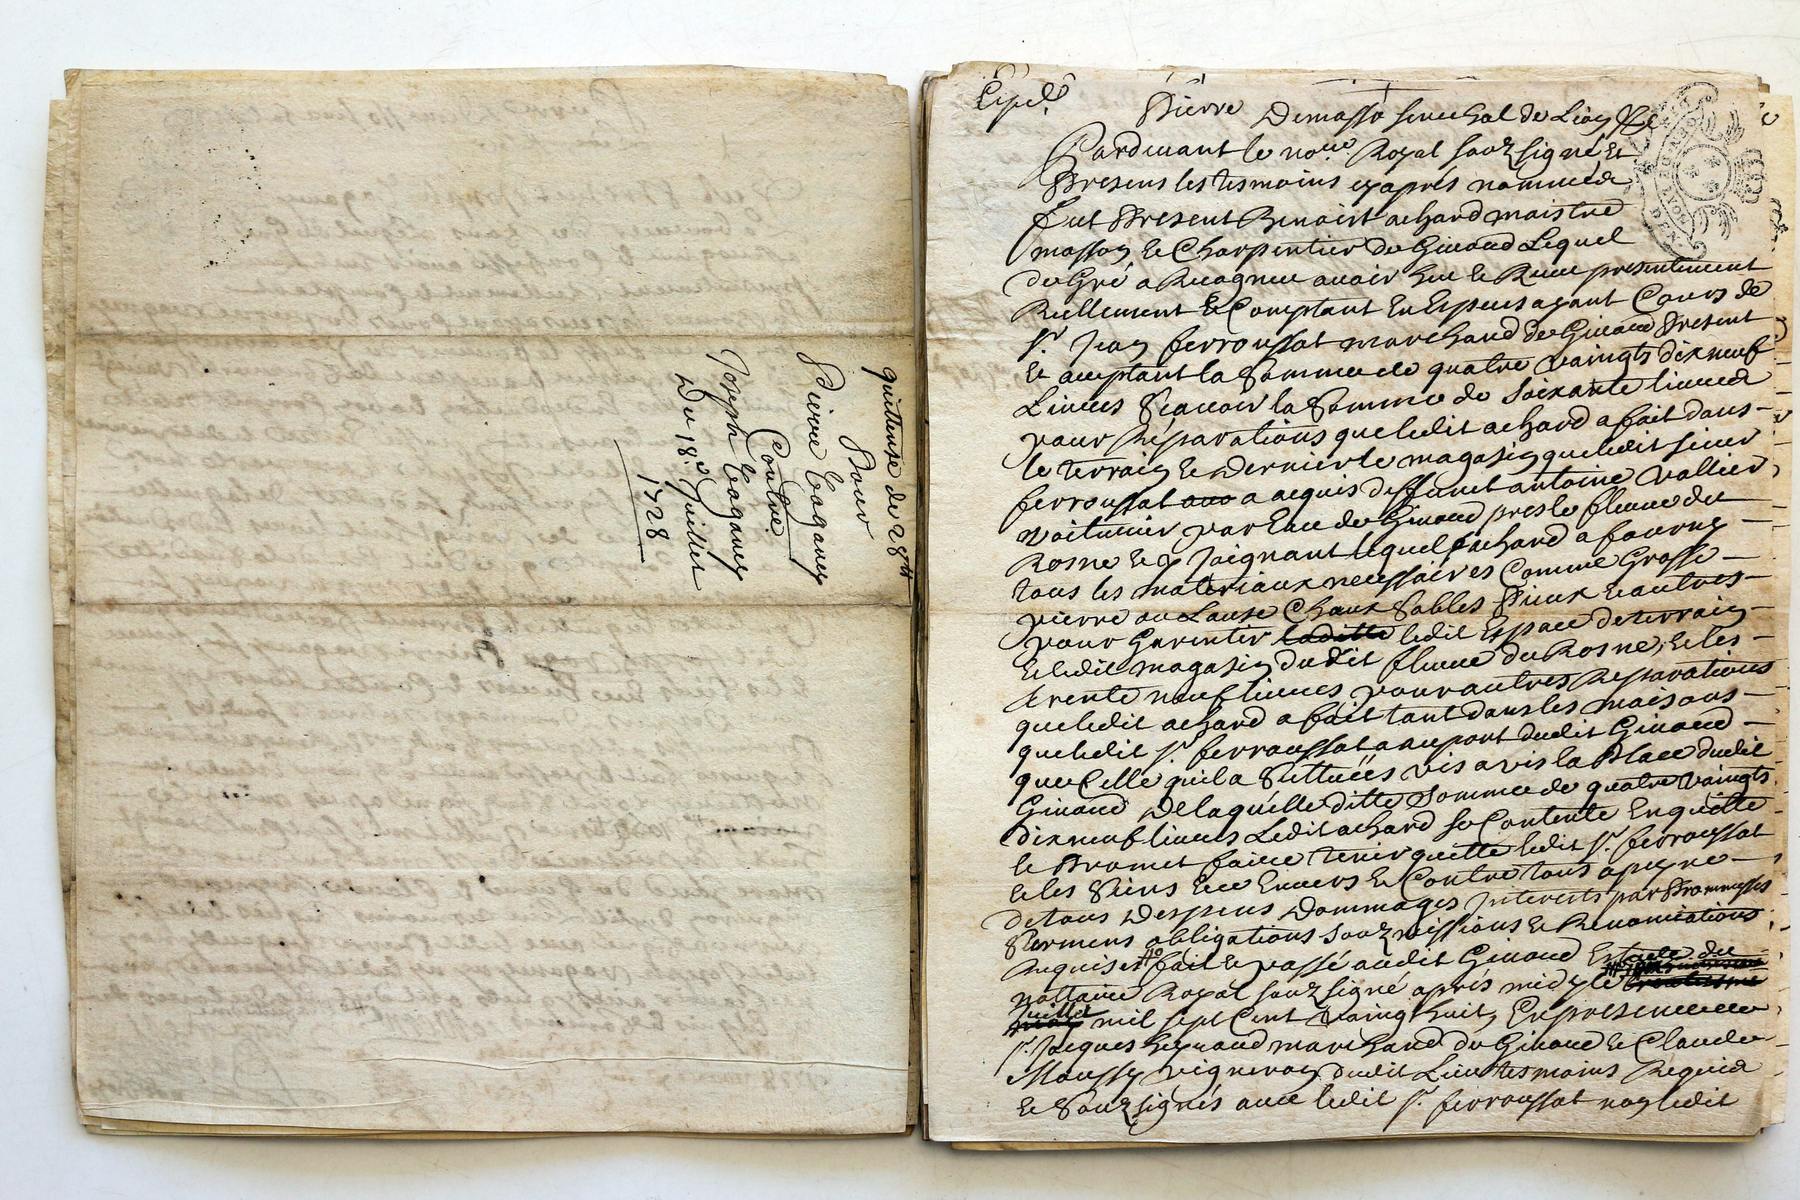 quittense de 28ᵗᵗ
Pour
Pierre
Contre
Joseph
Du 18ᵉ Juillet
1728
Expedᵉ
Pierre Demasso senechal de Lion
Pardevant le noʳᵉ Royal souzsigné Et
Presens les tesmoins cy apres nommés
fut Present Benoist achard maistre
masson & Charpentier de Givord Lequel
de Gré a Recogneu avoir heu & Receu presentement
Reellement & Comptant En Especes ayant Cours de
sʳ Jean ferroussat marchand de Givord Present
& acceptant la Somme de quatre vaingts dix neuf
Livres Scavoir la Somme de Soixante livres
pour Réparations que ledit achard a fait dans
le terrain & Derrier le magasin que ledit sieur
ferroussat a acquis deffunct antoine vallier
voiturier par Eau de Givord pres le fleuve du
Rosne & y Joignant lequel achard a fourny
tous les materiaux necessaires Comme Grosse
pierre ou Lause Chaux Sables Pieux & autres
pour Garentir ledit Espace de terrain
& ledit magasin dudit fleuve du Rosne, & les
trente neuf livres pour autres Reparations
que ledit achard a fait tant dans les maisons
que ledit sʳ ferroussat a au port dudit Givord
que Celle quil a Scittuées vis a vis la Place dudit
Givord De laquelle ditte Somme de quatre vaingts
dix neuf livres Ledit achard se Contente En quitte
& Promet faire tenir quitte ledit sʳ ferroussat
& les Siens Envers & Contre tous a peyne
de tous Despens Dommages Interests par Promesses
Sermens obligations souzmissions & Renonciations
Requises fait & passé audit Givord Estude du
nottaire Royal souzsigné après midy le
Juillet mil sept Cent vaing huit, En presence de
sʳ Jacques marchand de Givord & Claude
Moussy vigneron dudit Lieu tesmoins Requis
& Souzsignés avec ledit sʳ ferroussat non ledit